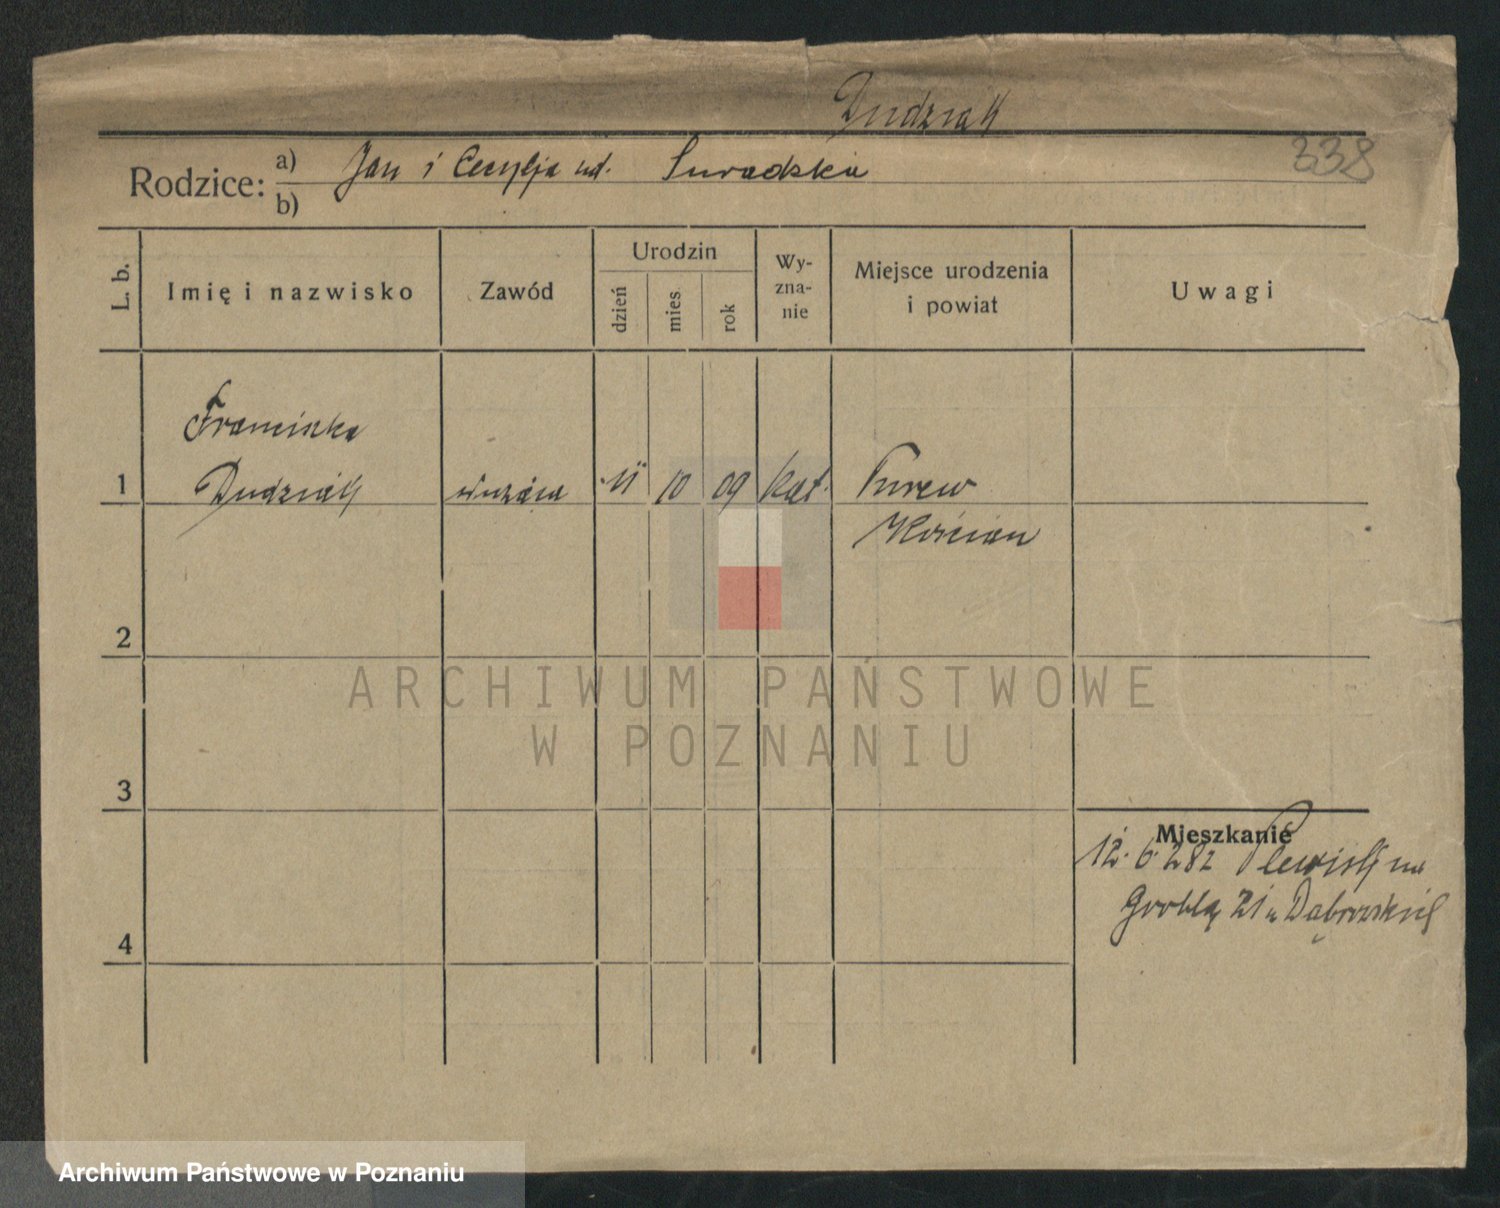 Dudziak
338
Rodzice: a) Jan i Cecylja ur. Suradzka
b)
L. b.
Imię i nazwisko
Zawód
Urodzin
dzień
mies
rok
Wy-
zna-
nie
Miejsce urodzenia
i powiat
Uwagi
Franciszka
1 Dudziak służąca 11 10 09 kat. Turew
Kościan
2
ARCHIWUM PAŃSTWOWE
W POZNANIU
3
Mieszkanie
12. 6. 28 z Plewisk na
4 Groblą 21 u Dąbrowskiej
Archiwum Państwowe w Poznaniu